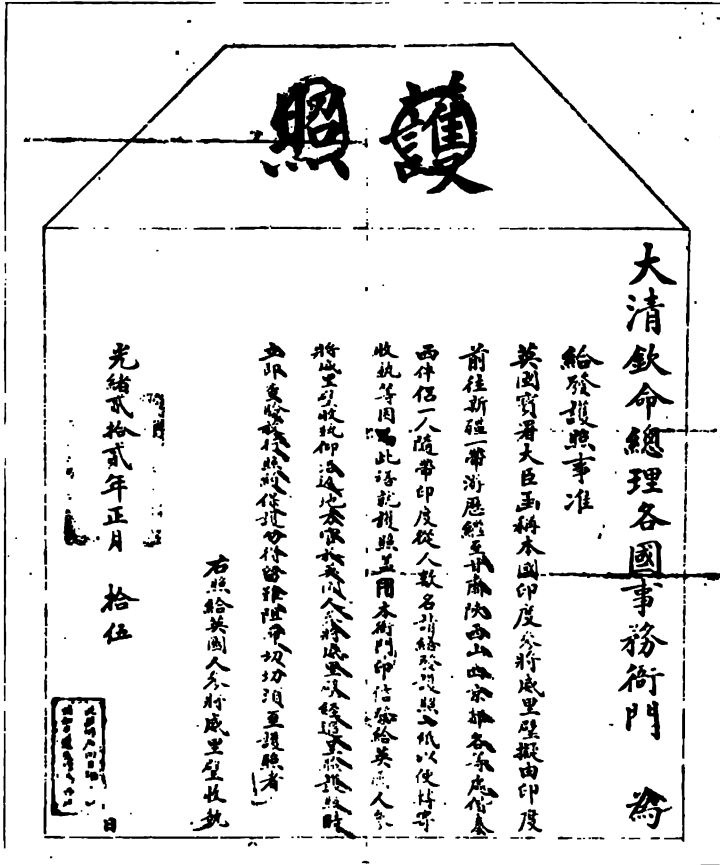 護照
大清欽命總理各國事務衙門 為
給發護照事准
英國寶署大臣函稱本國印度參將威里壁擬由印度
前往新疆一帶游歷經至甘肅陝西山西京都各等處偕秦
西伴侶一人隨帶印度從人數名請繕發護照一紙以便轉寄
收執等因為此繕就護照蓋用本衙門印信發給英國人參
將威里壁收執仰沿途地方官於英國人參將威里壁經過呈驗護照時
立即查驗放行照約保護勿得留難阻滯切切須至護照者
右照給英國人參將威里壁收執
光緒貳拾貳年正月 拾伍
日